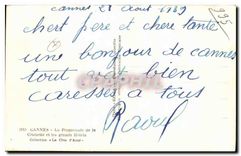 Cannes 21 août 1969
chert frère et chere tante
une bonjour de cannes
tout vas bien
caresses à tous
Raoul
295
CANNES - La Promenade de la
Croisette et les grands Hôtels
Collection "La Côte d'Azur"